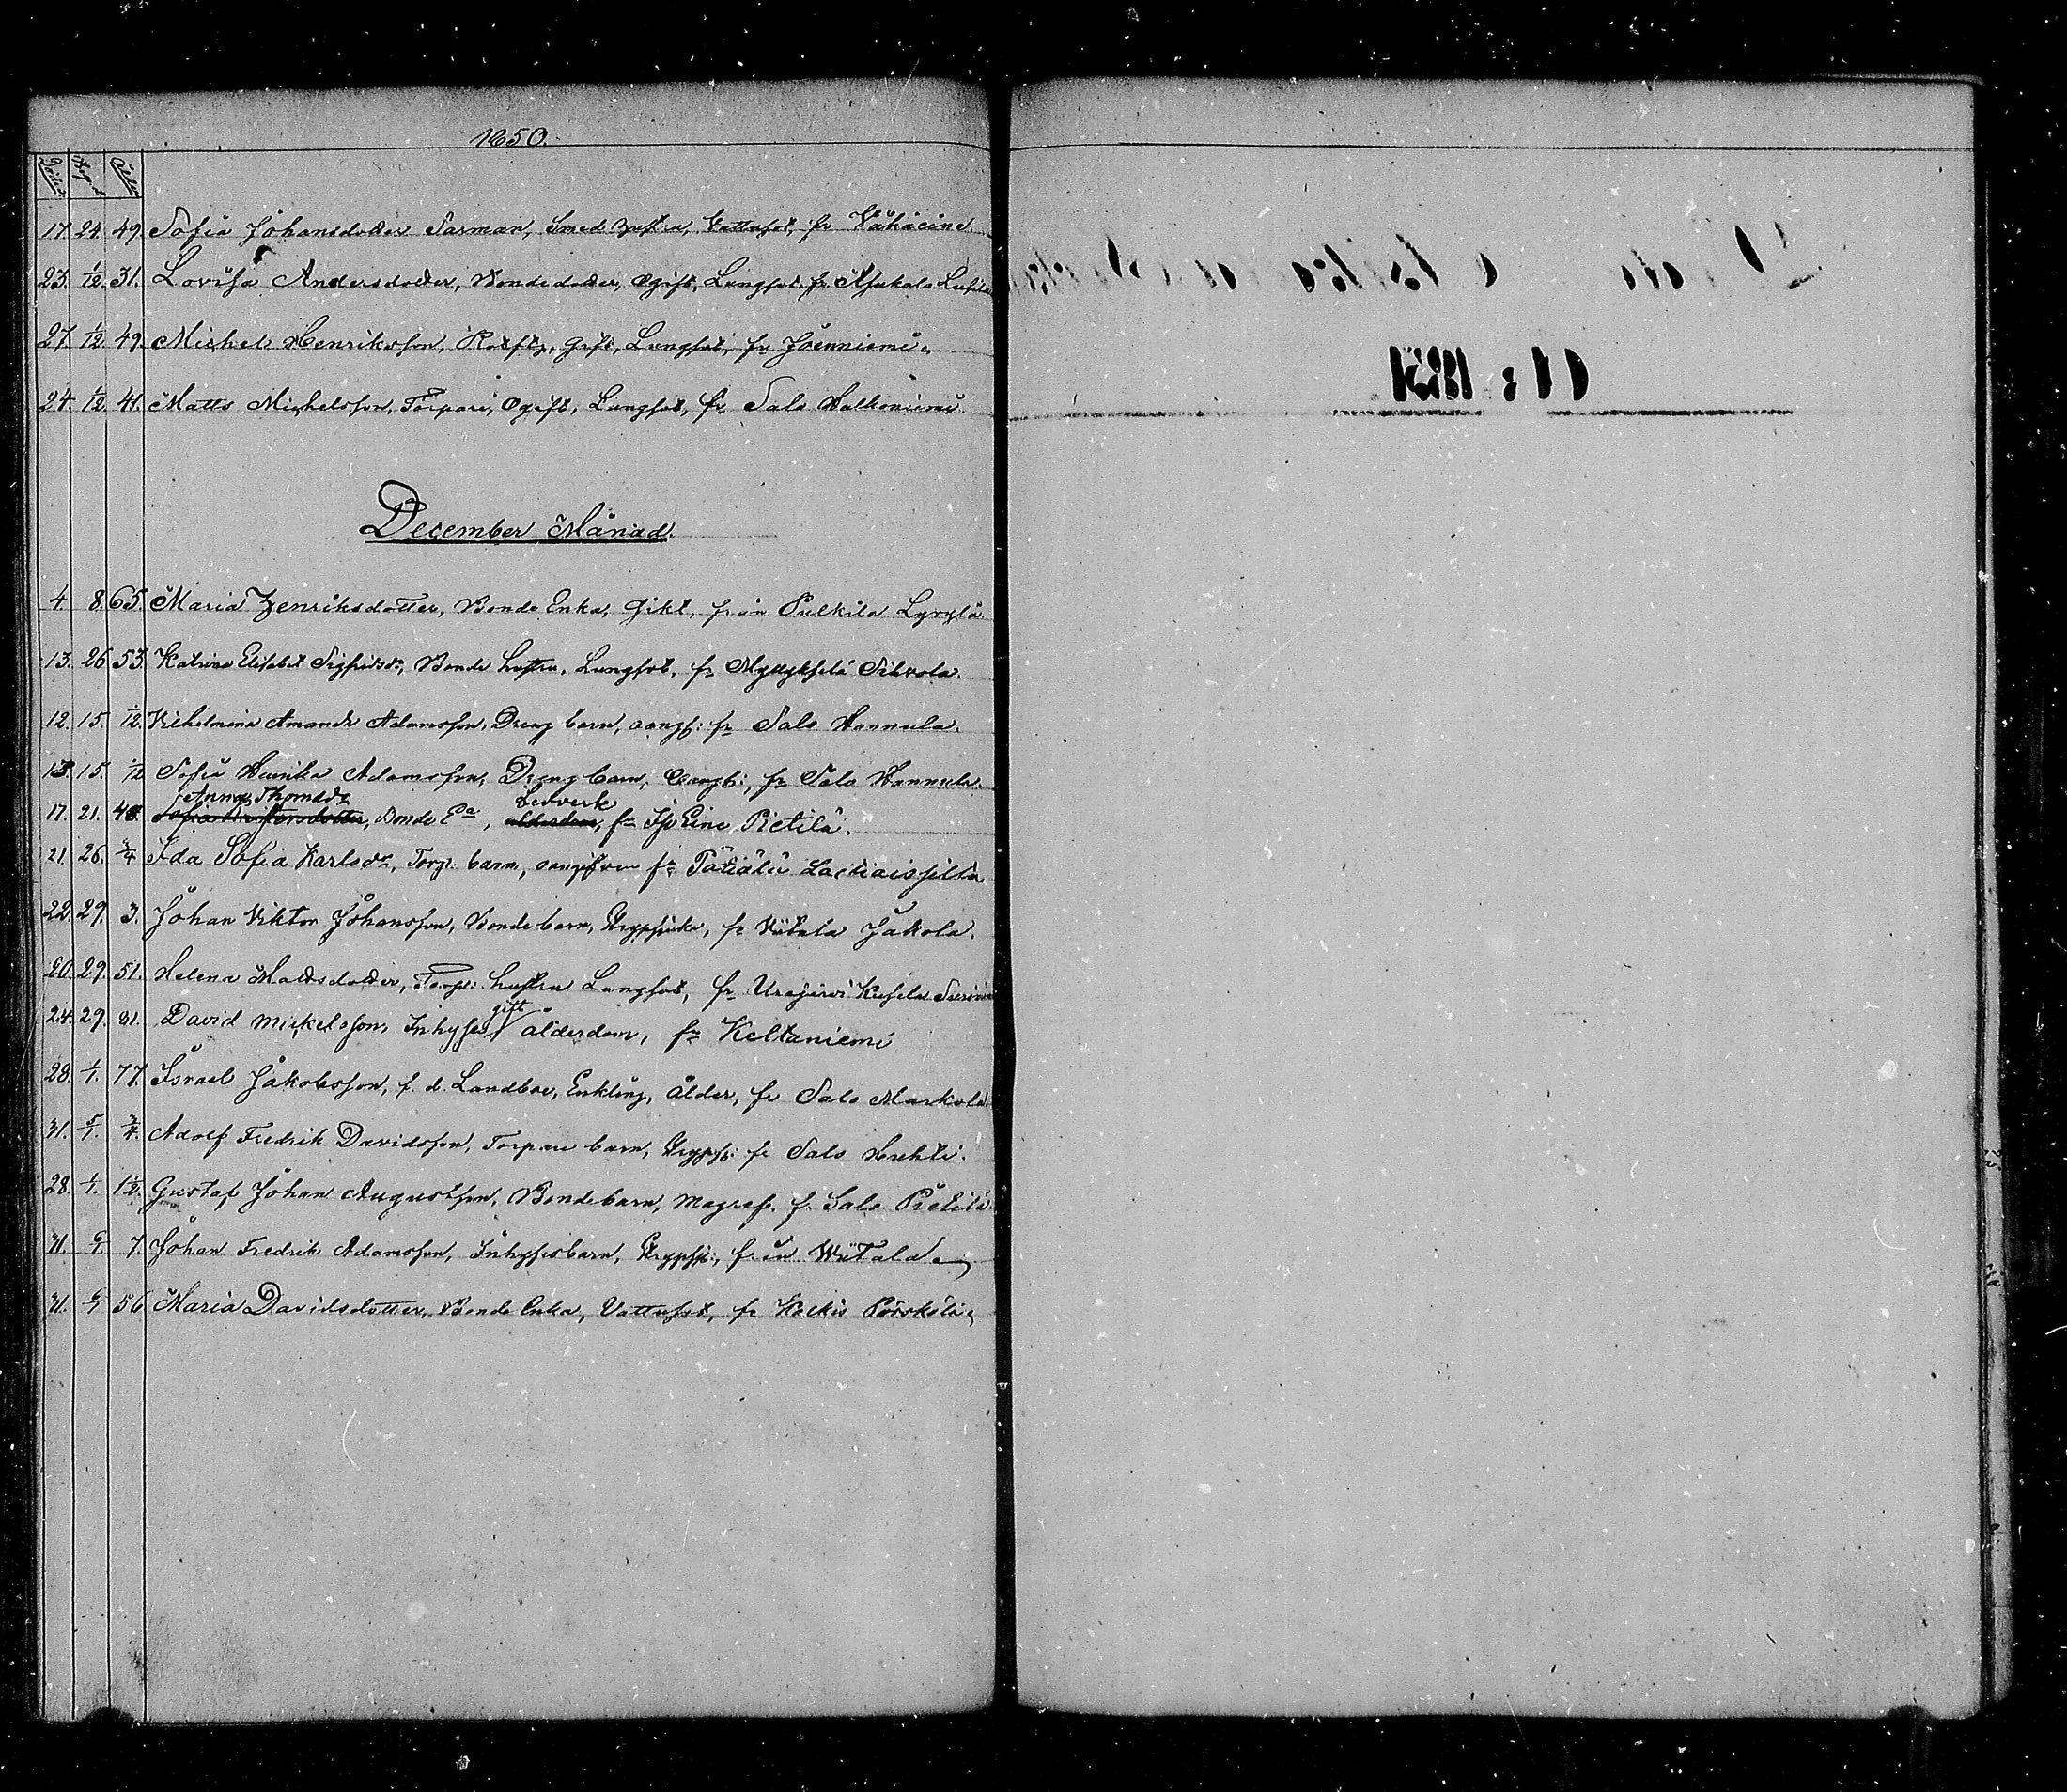 1850.
Döde Begr. Ålder
17. 24. 49. Sofia Johansdotter Sarman, Smeds hustru, Vattusot, fr Vähäeine.
23. 1/12. 31. Lovisa Andersdotter, Bondedotter, Ogift, Lungsot, fr
27. 1/12. 49. Michel Henriksson, gift, Lungsot, fr Joenniemi.
24. 1/12. 41. Matts Michelsson, Torpare, Ogift, Lungsot, fr. Salo
December Månad.
4. 8. 65. Maria Henriksdotter, Bonde Enka, Gikt, från Pulkila
13. 26 53. Katrina Elisabet Sigfridsdr, Bonde hustru, Lungsot, fr Sihvola.
12. 15. 1/12. Vilhelmina Amanda Adamsson, Dreng barn, oangf: fr Salo Hannula.
13. 15. 1/12 Sofia Adamsson, Dreng barn, oangf:, fr Salo Hannula.
Anna Thomasdr Levverk
17. 21. Bonde Ea, ålderdom, fr Pietilä.
21. 26. 3/4 Ida Sofia Karlsdr, Torp: barn, oangifven fr Pätiälä
22. 29. 3. Johan Viktor Johansson, Bonde barn, Strypsjuka, fr Viitala Jakola.
20. 29. 51. Helena Mattsdotter, Torp: hustru Lungsot, fr Urajärvi
gift
24. 29. 81. David Mickelsson, Inhyses ålderdom, fr Keltaniemi
28. 1/1. 77. Israel Jakobsson, f. d. Landboe, Enkling, ålder, fr Salo Markola.
31. 5/1. 3/4. Adolf Fredrik Davidsson, Torpare barn, Strypsj: fr Salo Huhti.
28. 1/1. 1 1/2. Gustaf Johan Augustsson, Bondebarn, fr Salo Pietilä.
31. 6/1. 7. Johan Fredrik Adamsson, Inhysesbarn, Strypsj:, från Wiitala
31. 6/1 56 Maria Davidsdotter, Bonde Enka, Vattusot, fr